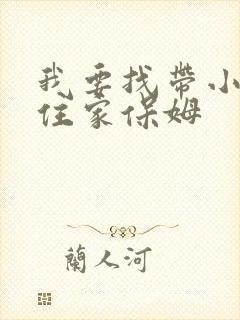 我要找带小
住家保姆
蘭人河